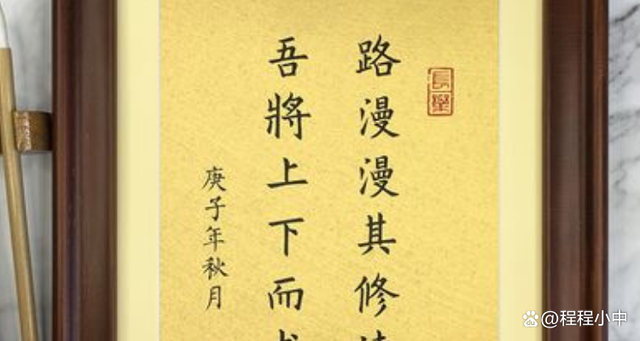 路漫漫其修
吾將上下而
庚子年秋月
@程程小中